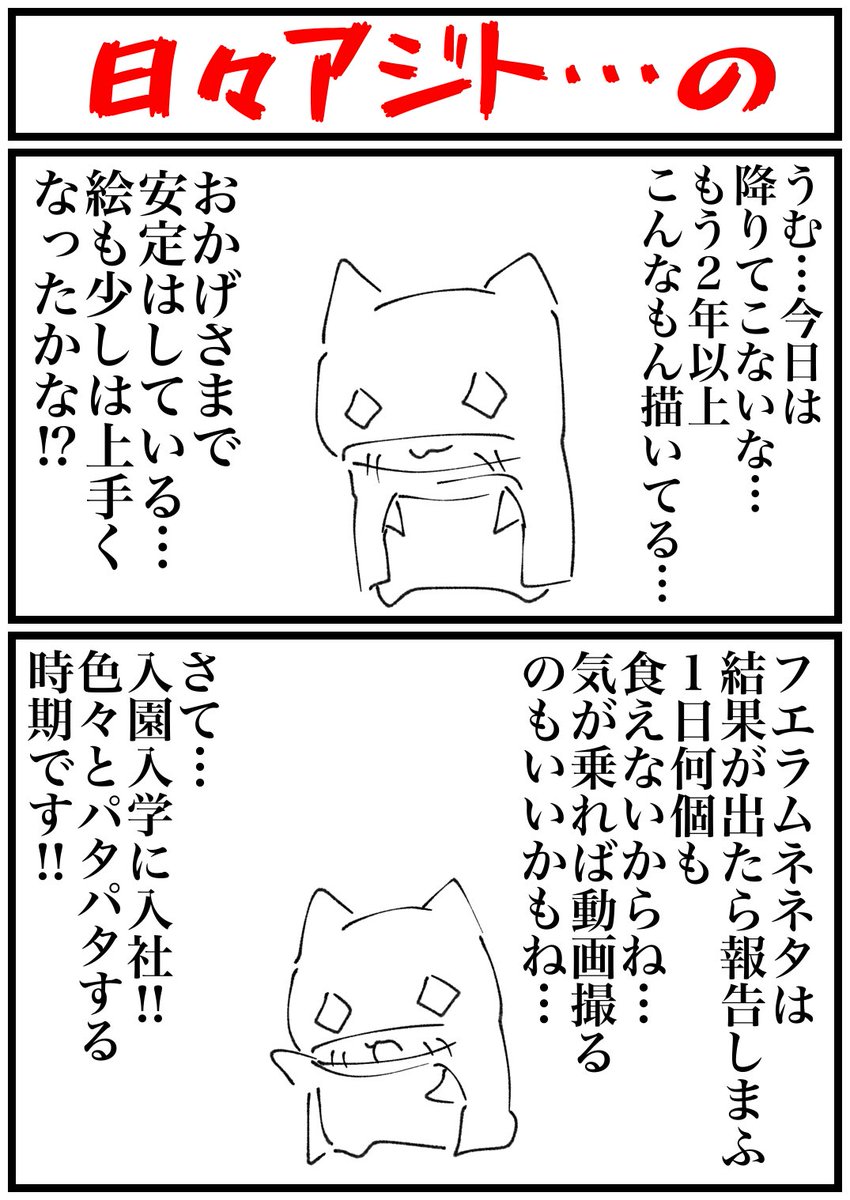 日々アジト…の
うむ…今日は
降りてこないな…
もう２年以上
こんなもん描いてる…
おかげさまで
安定はしている…
絵も少しは上手く
なったかな⁉
フエラムネネタは
結果が出たら報告しまふ
１日何個も
食えないからね…
気が乗れば動画撮る
のもいいかもね…
さて…
入園入学に入社‼
色々とパタパタする
時期です‼